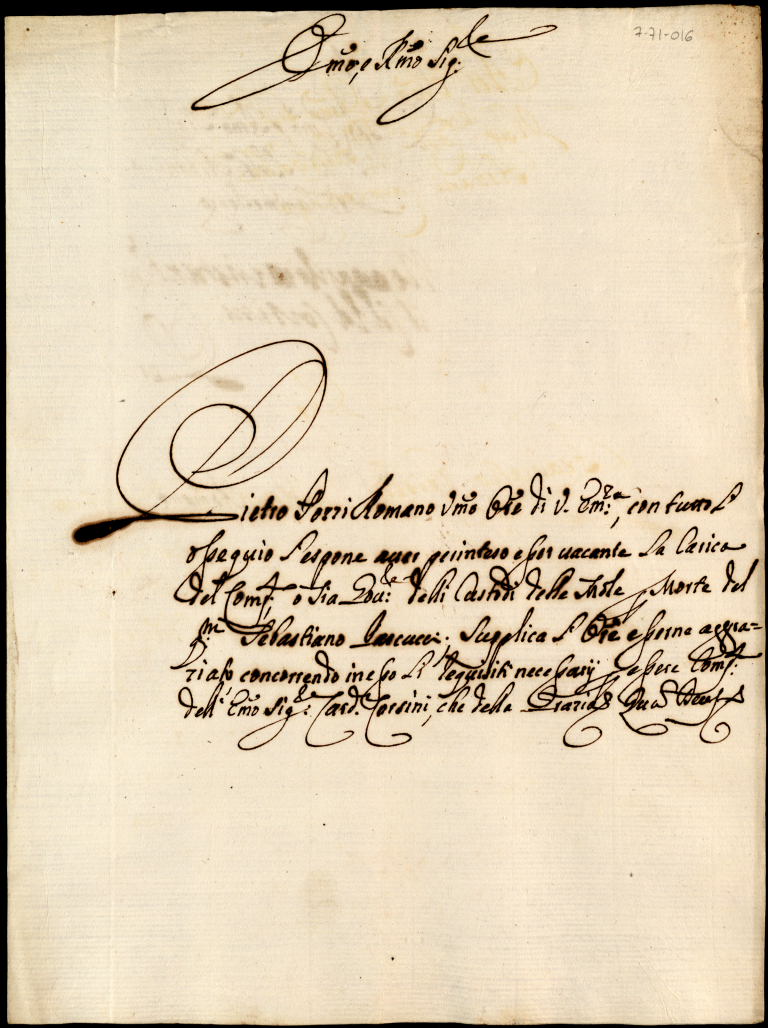 7-71-016
Emo, e Rmo Sig.re
Pietro Porri Romano Vmo Ore di V. Em.za, con tutto L'
ossequio L'espone aver perinteso esser vacante La Carica
del Comp. o sia delli Custodi delle Mole Morte del
Sebastiano Supplica L' Ore esserne aggra=
ziato concorrendo in esso Li requisiti necessarij essere Comp.
dell' Emo Sig.re Card. Corsini, che della